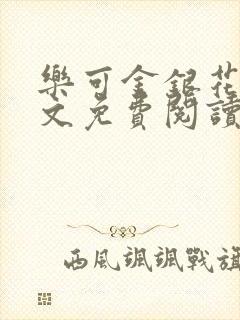 樂可金銀花
文免費閱讀
西風颯颯戰旗